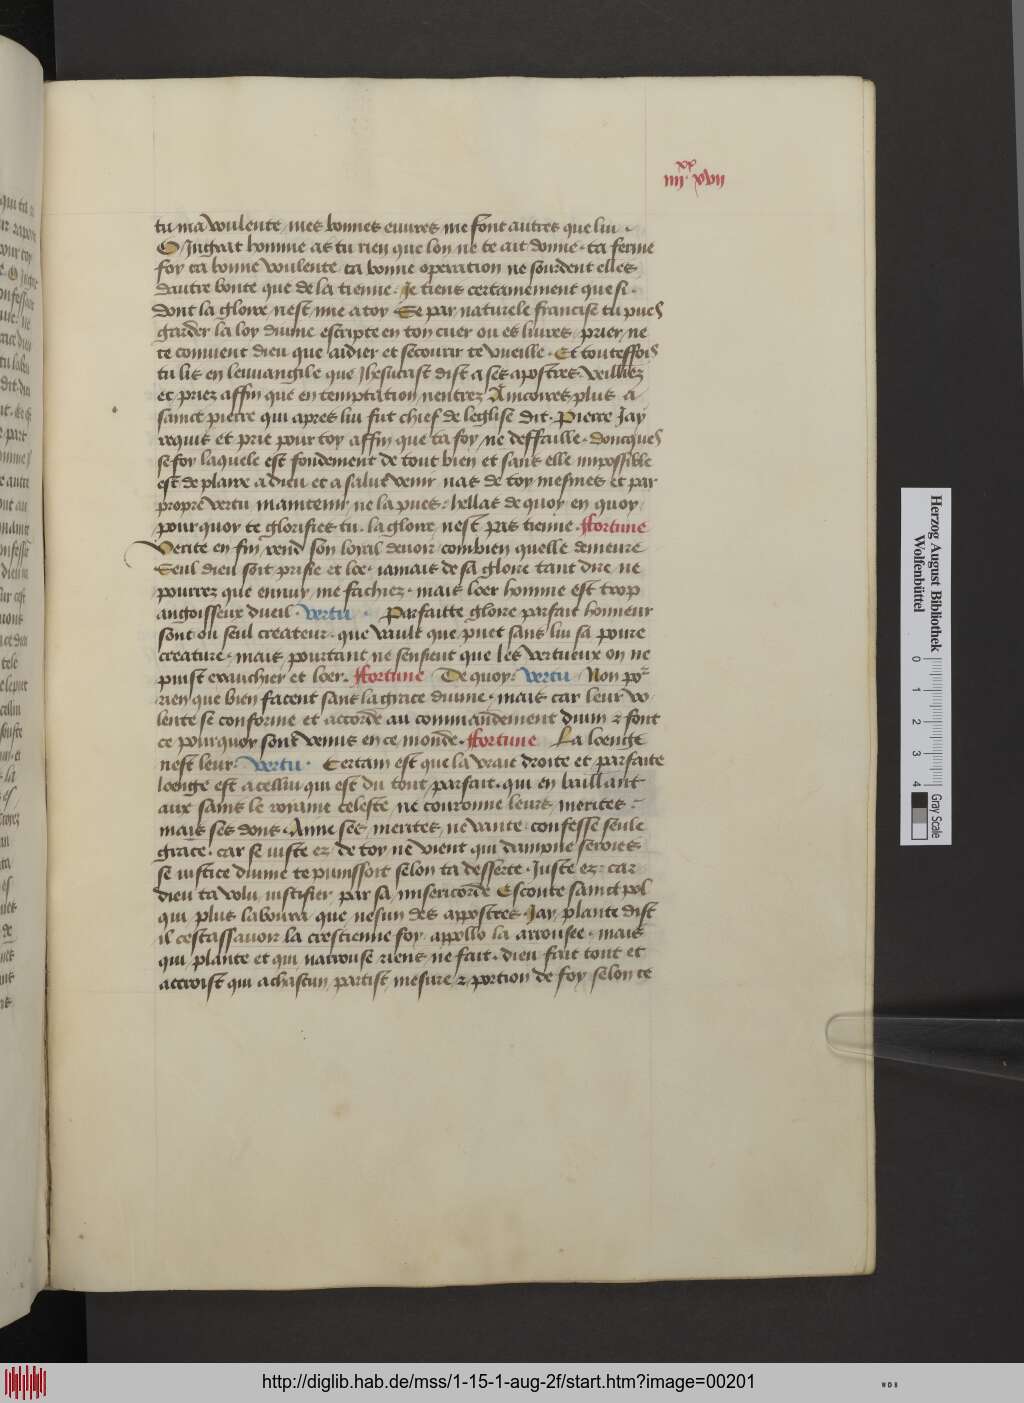 xx
iiii · xvii
tu ma voulente, mes bonnes euvres ne sont autres que lui ·
O Ingrat homme as tu rien que lon ne te ait donne · ta ferme
foy ta bonne voulente ta bonne operation ne sourdent elles
dautre bonte que de la tienne · Je tiens certainement que si ·
dont la gloire nest mie a toy · Se par naturele francise tu pues
garder la loy divine escripte en ton cuer ou es livres, prier, ne
te convient dieu que aidier et secourir te vueille · Et toutesfois
tu lis en leuvangile que Jhesucrist dist a ses apostres · veilliez
et priez affin que en temptation nentrez Aincoires plus a
sainct pierre qui apres lui fut chief de leglise dit · Pierre Jay
requis et prie pour toy affin que ta foy ne deffaille · doncques
se foy laquele est fondement de tout bien et sans elle impossible
est de plaire a dieu et a salut venir nas de toy mesmes et par
propre vertu maintenir ne la pues · hellas de quoy en quoy
pour quoy te glorifies tu · la gloire nest pas tienne · ffortune
Verite en fin rend son loyal devoir combien quelle demeure
Seul dieu soit prisie et loe · iamais de sa gloire tant dire ne
pourrez que ennuy me fachiez · mais loer homme est trop
angoisseux dueil · vertu · Parfaitte gloire parfait honneur
sont ou seul createur · que vault que puet sans lui sa povre
creature · mais pourtant ne sensieut que les vertueux on ne
puist exauchier et loer · ffortune De quoy · vertu Non por
rien que bien facent sans la grace divine · mais car leur vo
lente se conforme et accorde au commandement divin & font
ce pourquoy sont venus en ce monde · ffortune La loenge
nest leur · vertu · Certain est que la vraie droite et parfaite
loenge est a cellui qui est du tout parfait · qui en baillant
aux sains le royaume celeste ne couronne leurs merites ·
mais ses dons · Anne ses merites ne vante · confesse seule
grace · car se iuste ez de toy ne vient qui dampne seroies
se iustice divine te punissoit selon ta desserte · Juste ez · car
dieu ta volu iustifier par sa misericorde Escoute sainct pol
qui plus laboura que nesun des appostres · Jay plante dist
il cestassavoir la crestienne foy appollo la arrousee · mais
qui plante et qui narrouse riens ne fait · dieu fait tout et
accroist qui a chascun partist mesure & portion de foy selon ce
Herzog August Bibliothek
Wolfenbüttel
0 1 2 3 4
Gray Scale
http://diglib.hab.de/mss/1-15-1-aug-2f/start.htm?image=00201